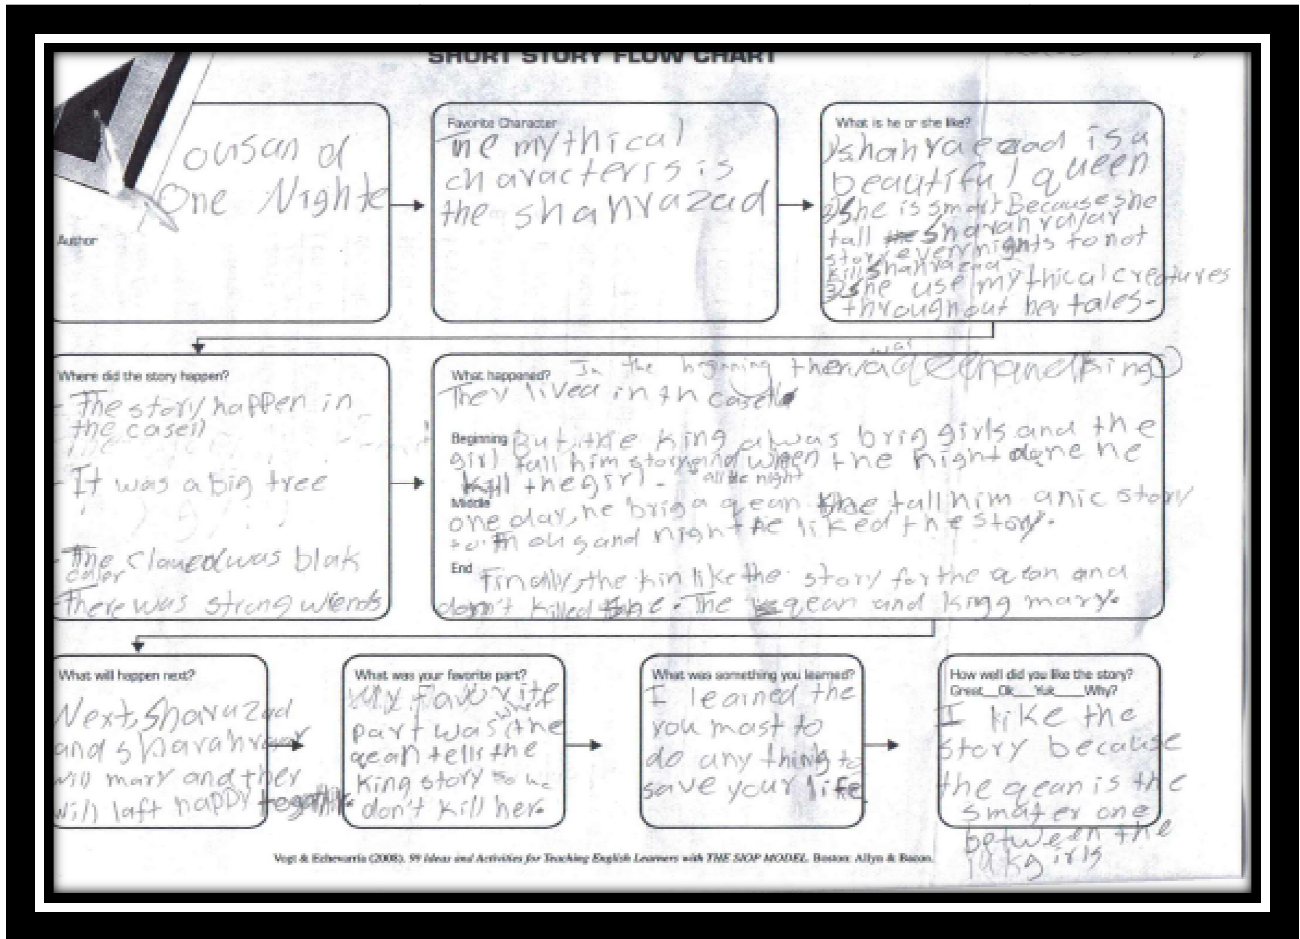 SHORT STORY FLOW CHART
ousan d
One Nighte
Author
Favorite Character
The mythical
characteris is
the shahrazad
What is he or she like?
1) shahraezad is a
beautiful queen
2) she is smart Because she
tall sharahrayar
story every nights to not
kill shahrazad
3) she use mythical creatures
throughout her tales.
Where did the story happen?
- The story happen in
the caseil
- It was a big tree
- The Clowed was blak
color
- There was strong wiends
What happened?
In the beginning there was a qeen and King
They lived in th
Beginning
But the King alwas brig girls and the
girl tall him story and when the night done he
kill the girl.
all the night
Middle
one day, he brig a qean she tall him a nic story
thousand night he liked the story.
End
Finally, the kin like the story for the qean and
don't killed she. The qean and king mary.
What will happen next?
Next, Sharuzad
and sharahrayar
will mary and ther
will laft happy
What was your favorite part?
My Favorite
part was when the
qean tells the
king story so he
don't kill her.
What was something you learned?
I learned the
you mast to
do any thing to
save your life
How well did you like the story?
Great__Ok__Yuk__Why?
I like the
story because
the qean is the
smater one
between the
girls
Vogt & Echevarria (2008). 99 Ideas and Activities for Teaching English Learners with THE SIOP MODEL. Boston: Allyn & Bacon.